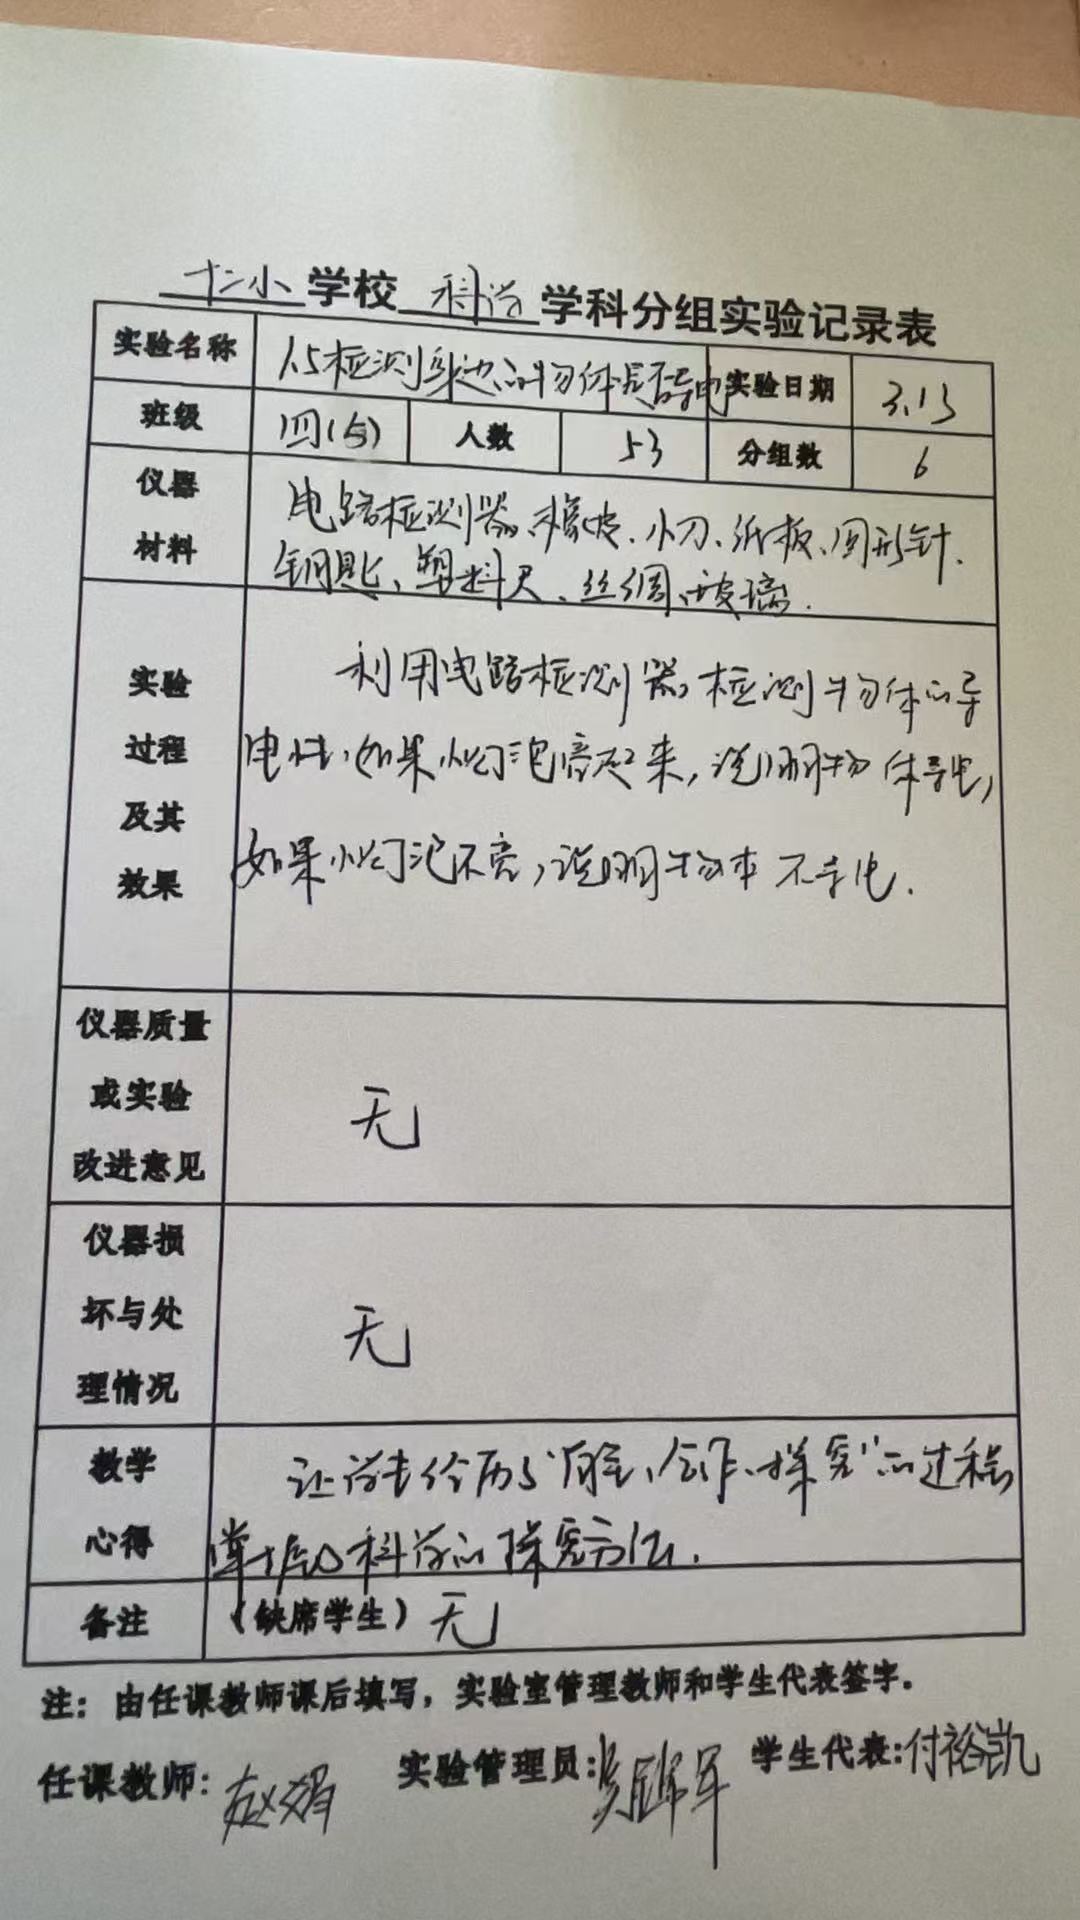 十二小学校 科学 学科分组实验记录表
实验名称 15检测身边的物体是否导电 实验日期 3.13
班级 四(5) 人数 53 分组数 6
仪器 电路检测器、橡皮、小刀、纸板、回形针、
材料 钥匙、塑料尺、丝绸、玻璃.
实验 利用电路检测器,检测物体的导
过程 电性,如果小灯泡亮起来,说明物体导电,
及其 如果小灯泡不亮,说明物体不导电.
效果
仪器质量
或实验 无
改进意见
仪器损
坏与处 无
理情况
教学 让学生经历了“自主、合作、探究”的过程,
心得 掌握的科学的探究方法.
备注 (缺席学生) 无
注: 由任课教师课后填写,实验室管理教师和学生代表签字。
任课教师: 赵娟 实验管理员: 军 学生代表: 付裕凯